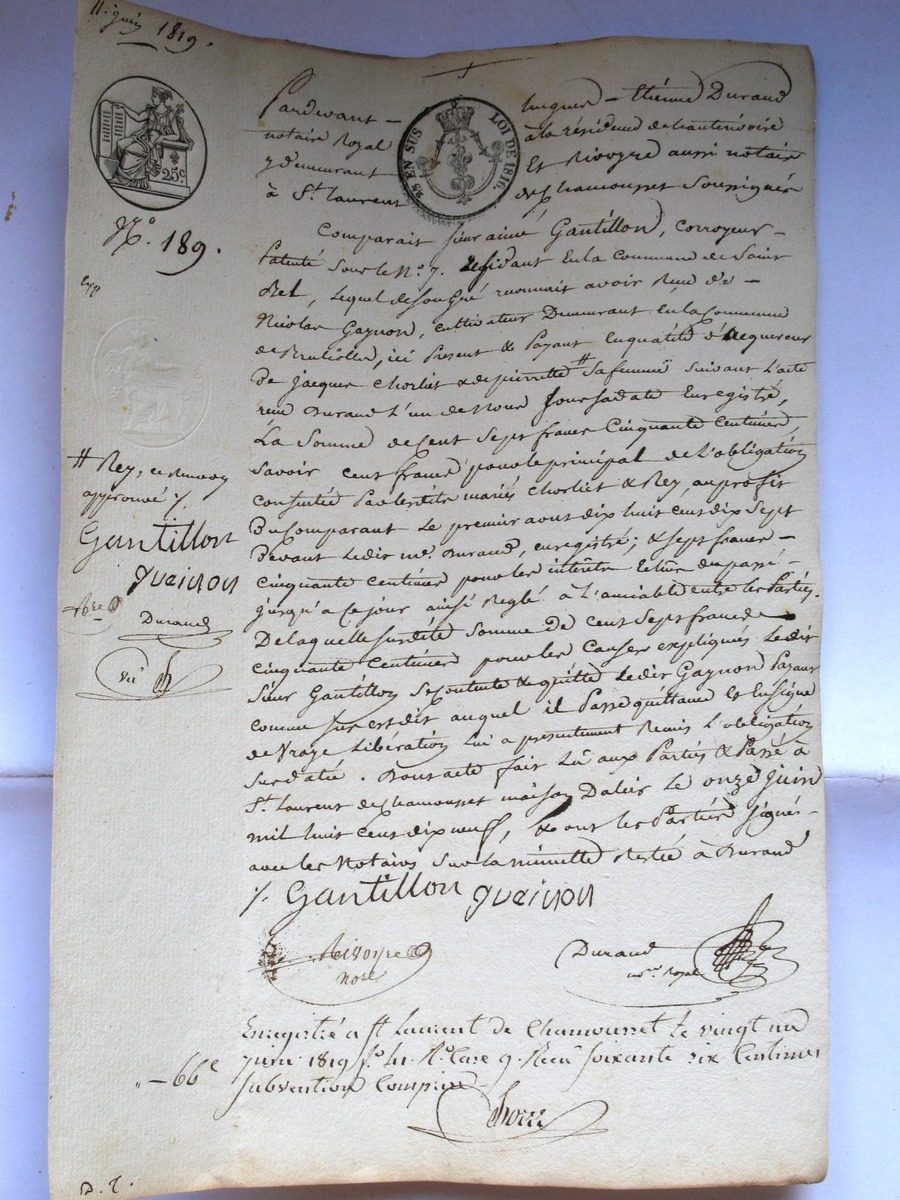 11. juin 1819.
25c
2/10 EN SUS LOI DE 1816.
Pardevant - hugues - Etiénne Durand
notaire Royal à la résidence de hauterivoire
y demeurant Et Rivoyre aussi notaire
à St. Laurent de Chamousset Soussignés
No. 189.
Comparait Sieur aimé Gantillon, corroyeur -
Patenté Sous le No. 7. Résidant En la Commune de Saint
Bel, Lequel de Son gré reconnait avoir Reçu de -
Nicolas Gagnon, cultivateur Demeurant En la Commune
de Brullioles, ici Présent & Payant En qualité d'acquéreur
De Jacques Chorliet & de pierrette # Sa femme Suivant L'acte
reçu Durand L'un de Nous Jour Sa date Enregistré,
La Somme de Cent Sept francs Cinquante Centimes,
Savoir Cent francs pour le principal de L'obligation
Consentie Par lesdits mariés Chorliet & Rey, au profit
Du Comparant Le premier aout dix huit Cent dix Sept
Devant Ledit me. Durand, enregistré; & Sept francs -
Cinquante Centimes pour les intérêts Echus du passé
jusqu'à Ce jour ainsi Réglé à L'amiable entre les Parties.
De laquelle Susdite Somme de Cent Sept francs
Cinquante Centimes pour les Causes expliqués Ledit
Sieur Gantillon Se Contente & quitte Ledit Gagnon Payant
Comme Sus est dit auquel il Passe quittance Et En Signe
de Vraye Libération Lui a présentement Remis L'obligation
Susdatée. Dont acte fait Lu aux Parties & Passé à
St. Laurent de Chamousset maison Dalier Le onze Juin
mil huit Cent dix neuf, & ont les Parties Signés -
avec les Notaires Sur la minute Restée à Durand
# Rey, ce Renvoy
approuvé /.
Gantillon
gueinon
Rre
Durand
/. Gantillon gueinon
Rivoyre
nore
Durand
nore. Royal
Enregistré a St Laurent de Chamousset le vingt un
Juin 1819 fo. 41 Ro. Case 9. Recu soixante six Centimes
subvention Comprise
- 66c
D. T.